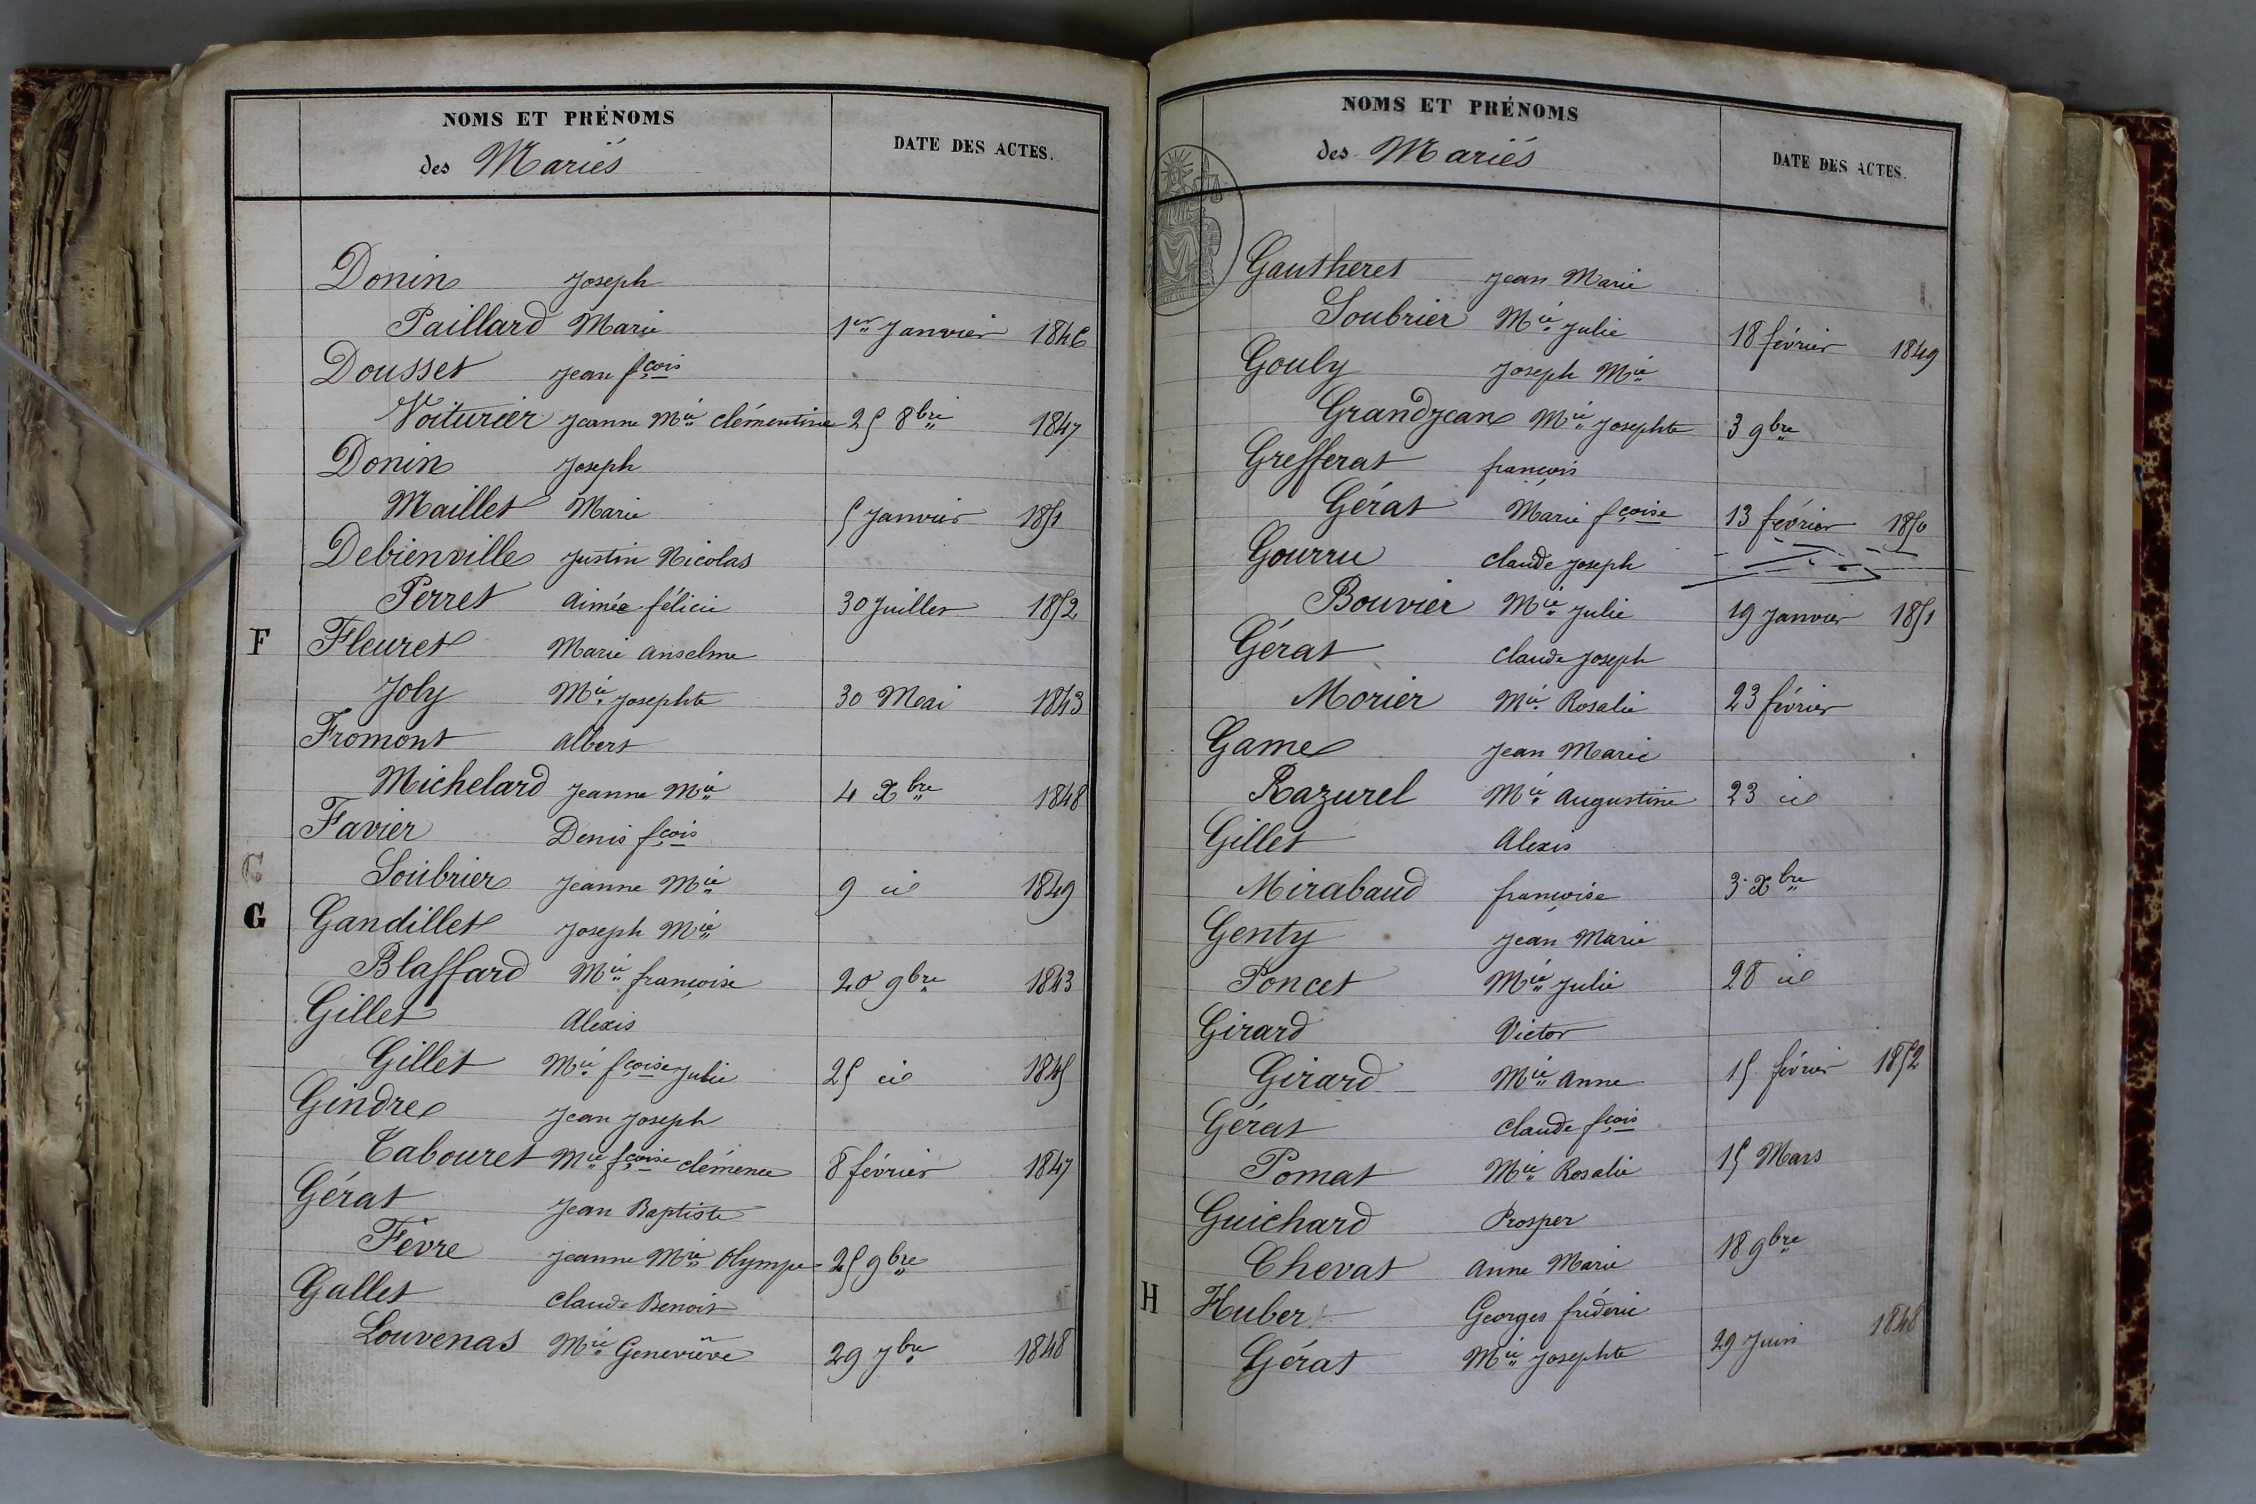 NOMS ET PRÉNOMS
des Mariés
DATE DES ACTES.
Donin Joseph
Paillard Marie 1er Janvier 1846
Dousset Jean fçois
Voiturier Jeanne Mie clémentine 25 8bre 1847
Donin Joseph
Maillet Marie 5 Janvier 1851
Debienville Justin Nicolas
Perret aimée félicie 30 Juillet 1852
F Fleuret Marie anselme
Joly Mie Josephte 30 Mai 1843
Fromont albert
Michelard Jeanne Mie 4 Xbre 1848
Favier Denis fçois
Soubrier Jeanne Mie 9 id 1849
G Gandillet Joseph Mie
Blaffard Mie françoise 20 9bre 1843
Gillet Alexis
Gillet Mie fçoise Julie 25 id 1845
Gindre Jean Joseph
Tabouret Mie fçoise clémence 8 février 1847
Gérat Jean Baptiste
Fèvre Jeanne Mie Olympe 25 9bre
Gallet claude Benoit
Louvenas Mie Geneviève 29 7bre 1848
NOMS ET PRÉNOMS
des Mariés
DATE DES ACTES.
Gautheret Jean Marie
Soubrier Mie Julie 18 février 1849
Gouly Joseph Mie
Grandjean Mie Josephte 3 9bre
Grefferat françois
Gérat Marie fçoise 13 février 1850
Gourru claude Joseph
Bouvier Mie Julie 19 Janvier 1851
Gérat claude Joseph
Morier Mie Rosalie 23 février
Game Jean Marie
Razurel Mie Augustine 23 id
Gillet Alexis
Mirabaud françoise 3 Xbre
Genty Jean Marie
Poncet Mie Julie 28 id
Girard Victor
Girard Mie Anne 15 février 1852
Gérat claude fçois
Pomat Mie Rosalie 15 Mars
Guichard Prosper
Chevat Anne Marie 18 9bre
H Huber Georges fréderic
Gérat Mie Josephte 29 Juin 1848